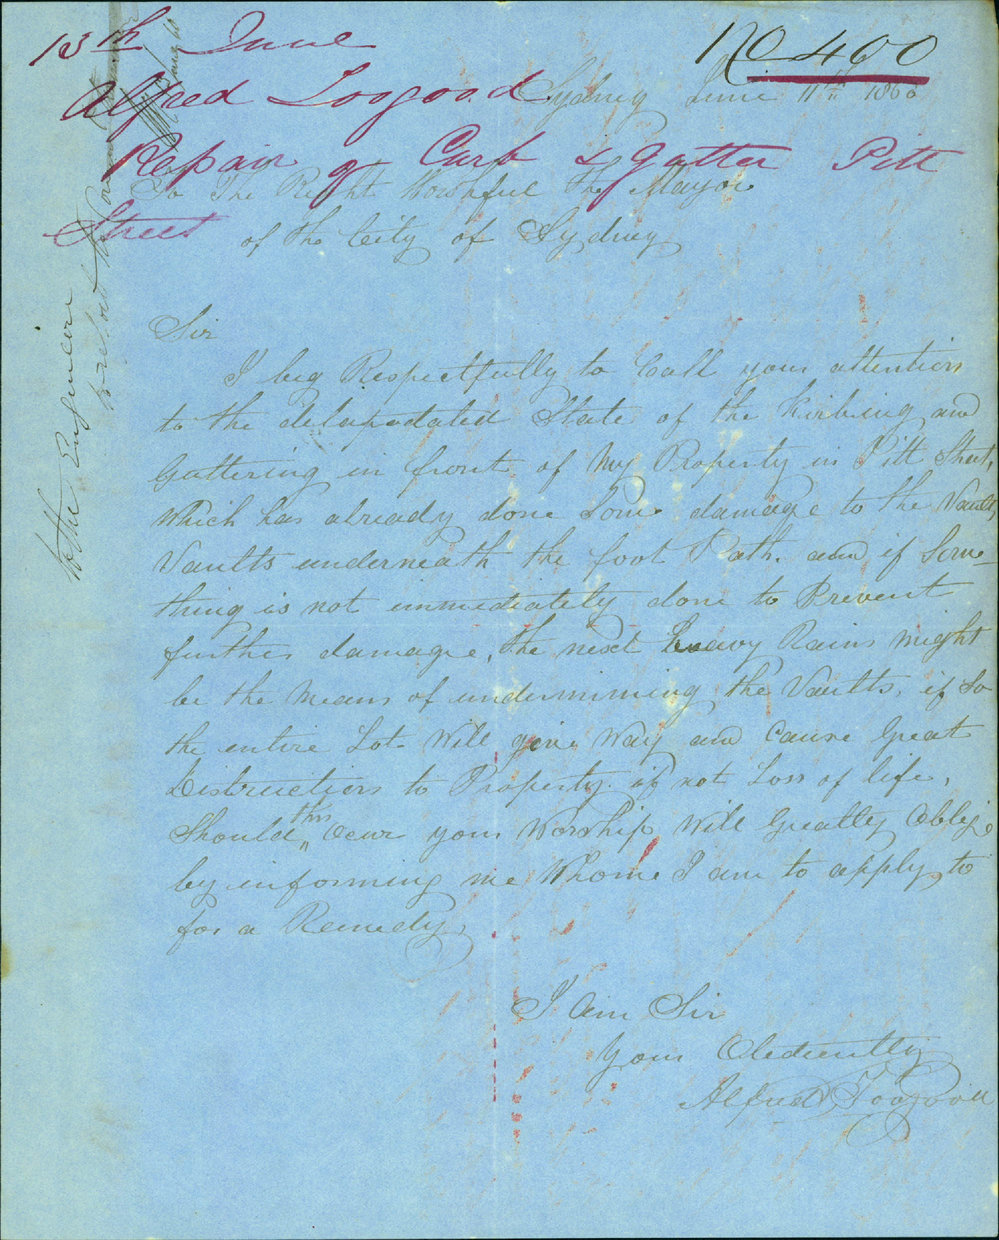 13th June
No 400
Alfred Toogood
Sydney June 11th 1866
Repair of Curb & Gutter Pitt
Street
To The Right Worshful the Mayor
of the City of Sydney
Sir
I beg Respectfully to Call your attention
to the delapedated State of the Kirbing and
Guttering in front of My Property in Pitt Street,
Which has already done Some damage to the Vault,
Vaults underneath the foot Path. and if Some-
thing is not immediately done to Prevent
further damage, the next heavy Rains might
be the Means of undermining the Vaults, if So
the entire Lot Will give Way and Cause Great
Distruction to Property if not Loss of life,
Should this Ocur your Worship Will Greatly Oblige
by informing me Whome I am to apply to
for a Remedy,
I am Sir
Your Obediently
Alfred Toogood
To the Engineer